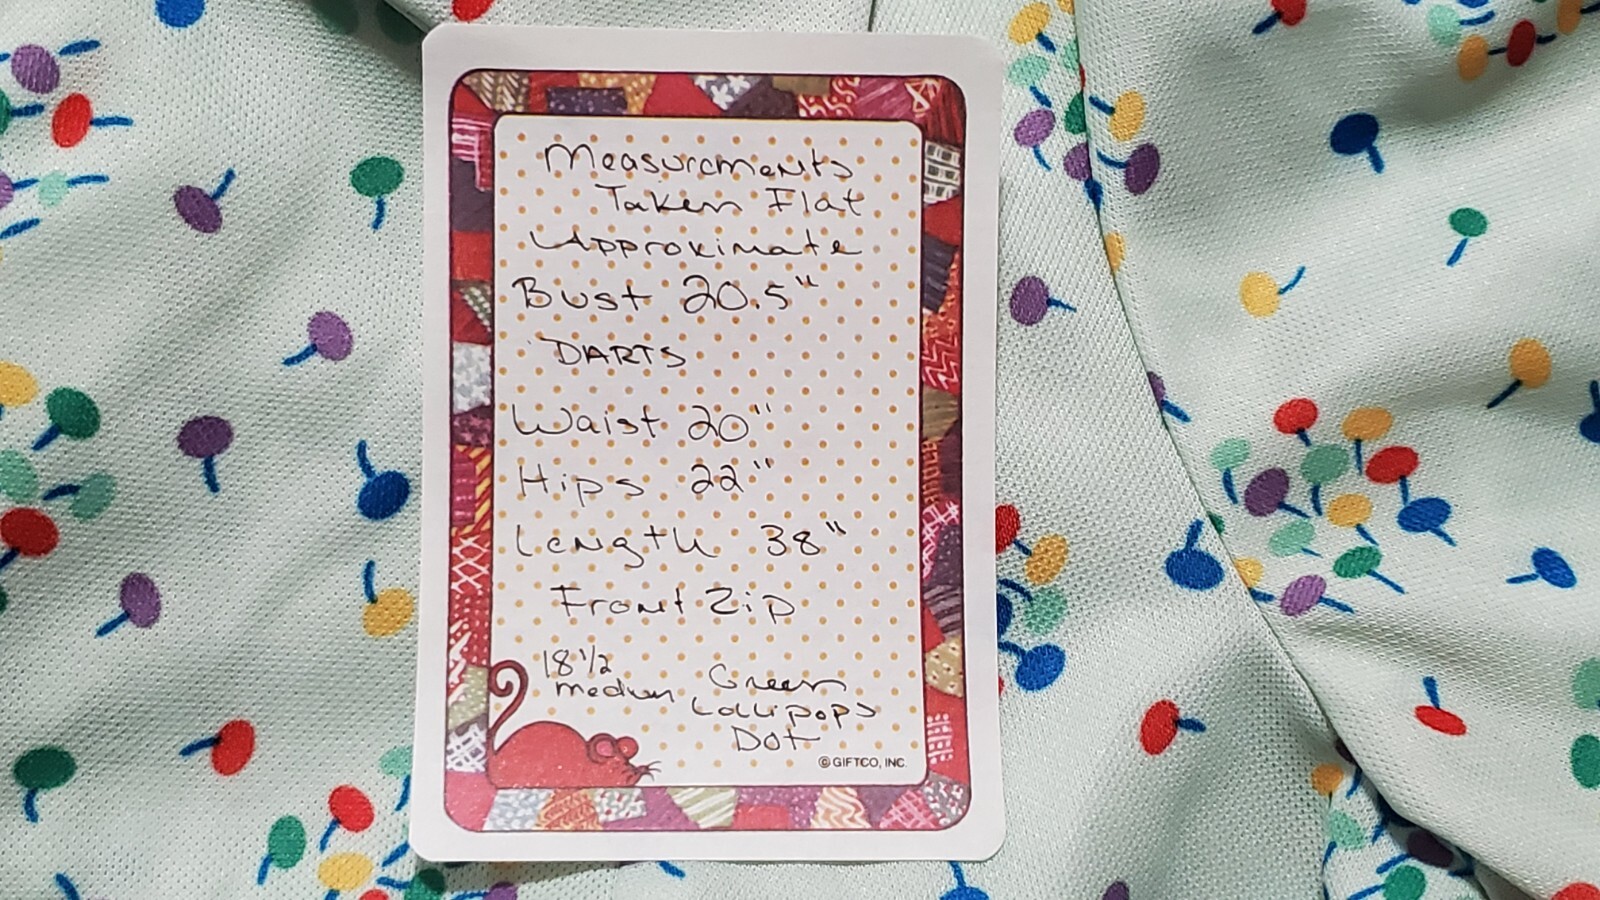 Measurements
Taken Flat
Approximate
Bust 20.5"
DARTS
Waist 20"
Hips 22"
Length 38"
Front Zip
18 1/2
medium
Green
Lollipops
Dot
© GIFTCO, INC.